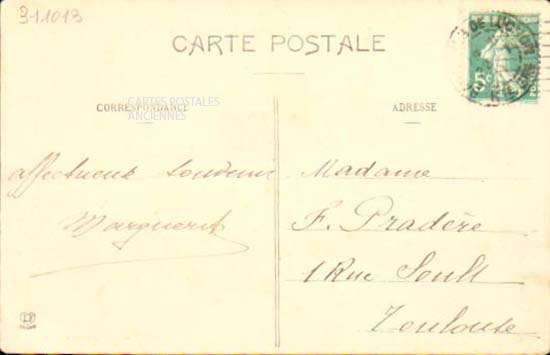 311013
CARTE POSTALE
CORRESPONDANCE
CARTES POSTALES
ANCIENNES
ADRESSE
affectueux souvenir
Marguerite
Madame
F. Pradère
1 Rue Soult
Toulouse
DE LUCHON
5c